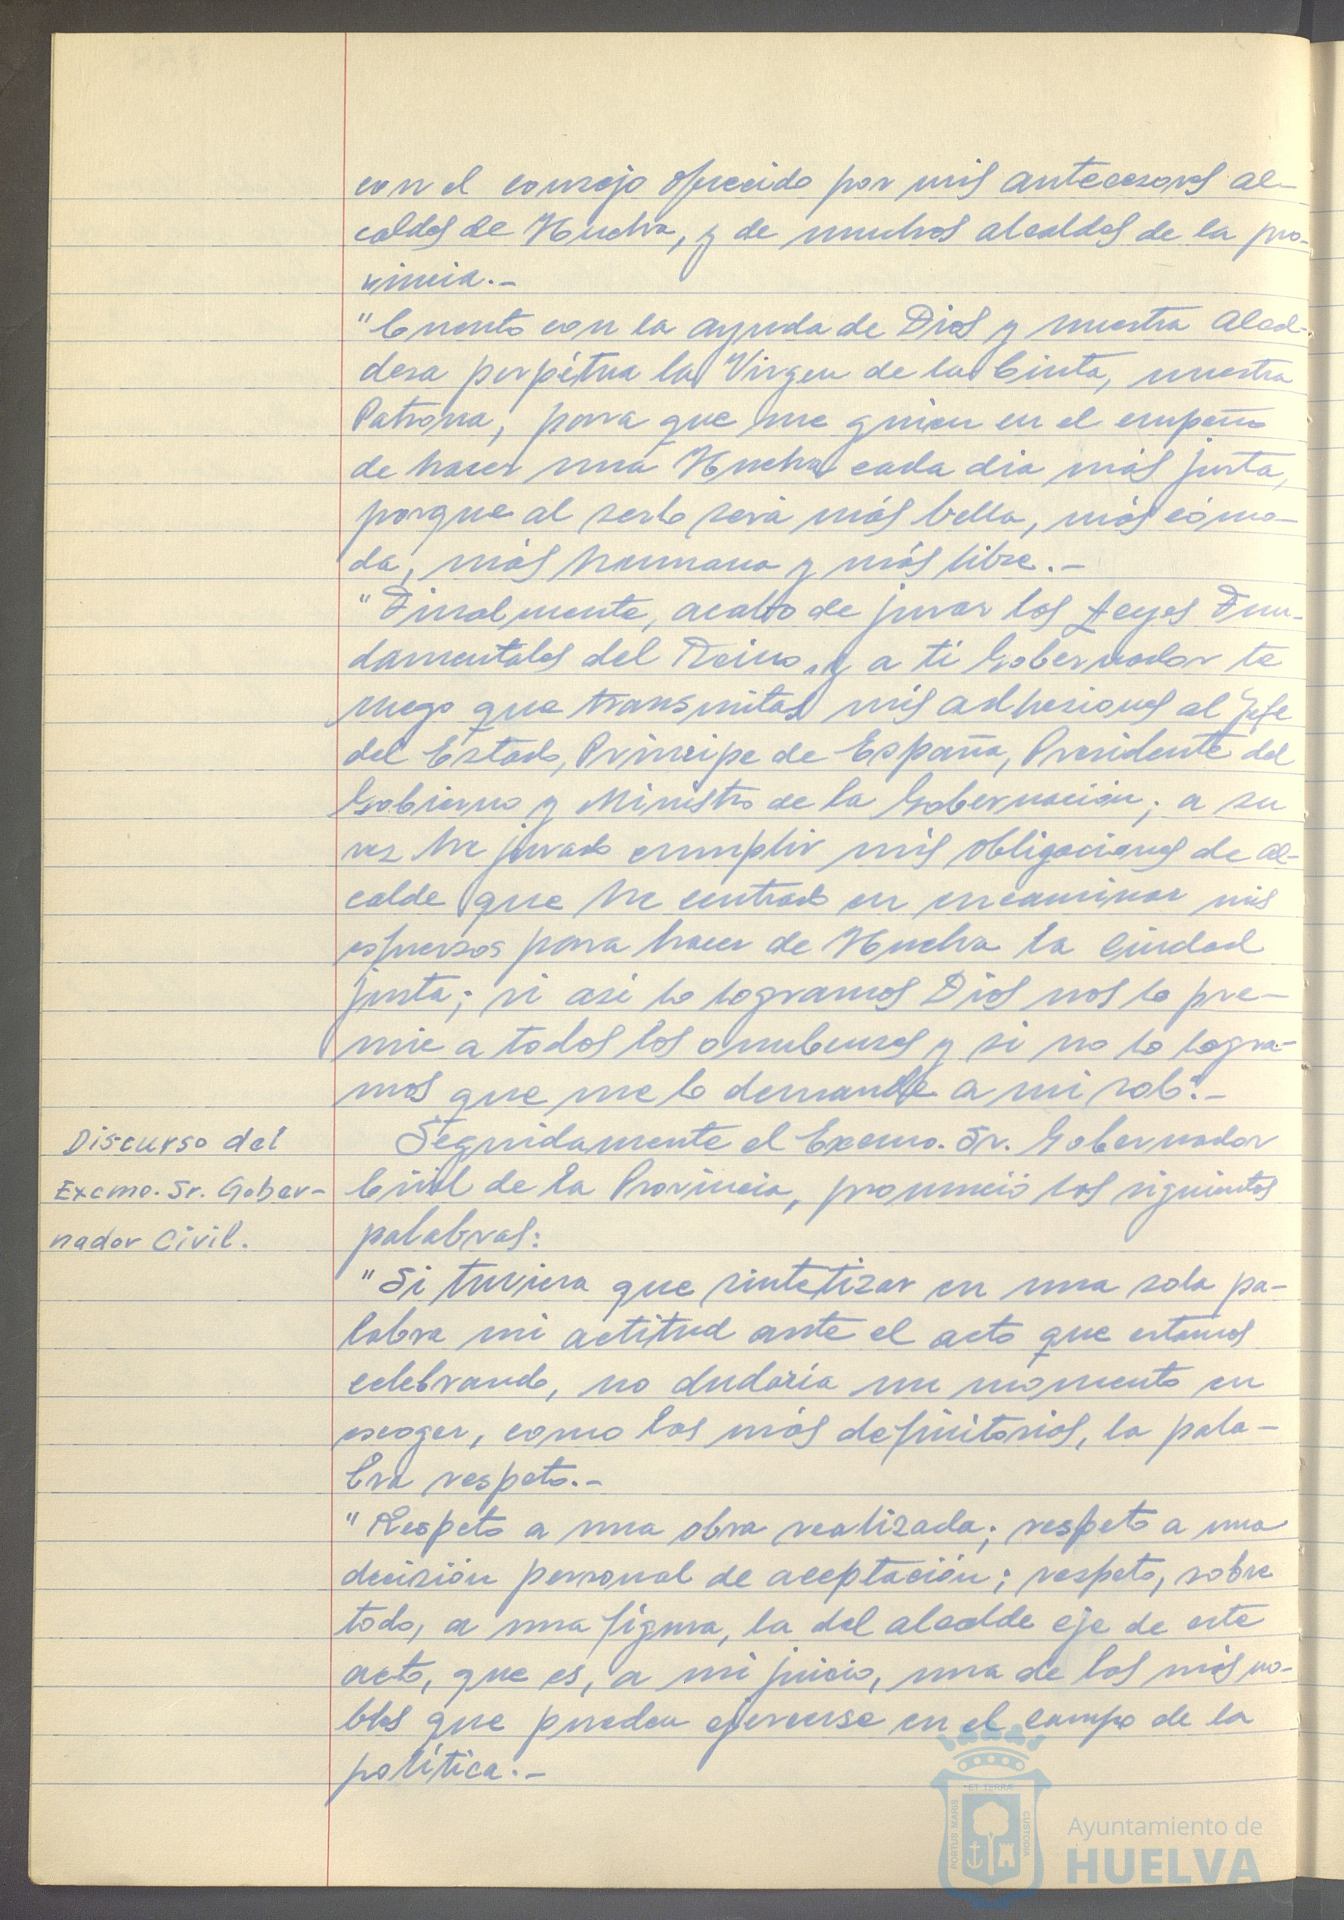 con el consejo ofrecido por mis antecesores al-
caldes de Huelva, y de muchos alcaldes de la pro-
vincia.-
"Cuento con la ayuda de Dios y nuestra alcal-
desa perpétua la Virgen de la Cinta, nuestra
Patrona, para que me guien en el empeño
de hacer una Huelva cada dia más justa,
porque al serlo será más bella, más cómo-
da, más humana y más libre.-
"Finalmente, acabo de jurar los Leyes Fun-
damentales del Reino, y a ti Gobernador te
ruego que transmitas mis adhesiones al Jefe
del Estado, Príncipe de España, Presidente del
Gobierno y Ministro de la Gobernación; a su
vez he jurado cumplir mis obligaciones de al-
calde que he centrado en encaminar mis
esfuerzos para hacer de Huelva la Ciudad
justa; si asi lo logramos Dios nos lo pre-
mie a todos los onubenses y si no lo logra-
mos que me lo demande a mi solo".-
Discurso del
Excmo. Sr. Gober-
nador Civil.
Seguidamente el Excmo. Sr. Gobernador
Civil de la Provincia, pronunció las siguientes
palabras:
"Si tuviera que sintetizar en una sola pa-
labra mi actitud ante el acto que estamos
celebrando, no dudaría un momento en
escoger, como las más definitorias, la pala-
bra respeto.-
"Respeto a una obra realizada; respeto a una
decisión personal de aceptación; respeto, sobre
todo, a una figura, la del alcalde eje de este
acto, que es, a mi juicio, una de las más no-
bles que pueden ejercerse en el campo de la
política.-
PORTUS MARIS
ET TERRAE
CUSTODIA
Ayuntamiento de
HUELVA